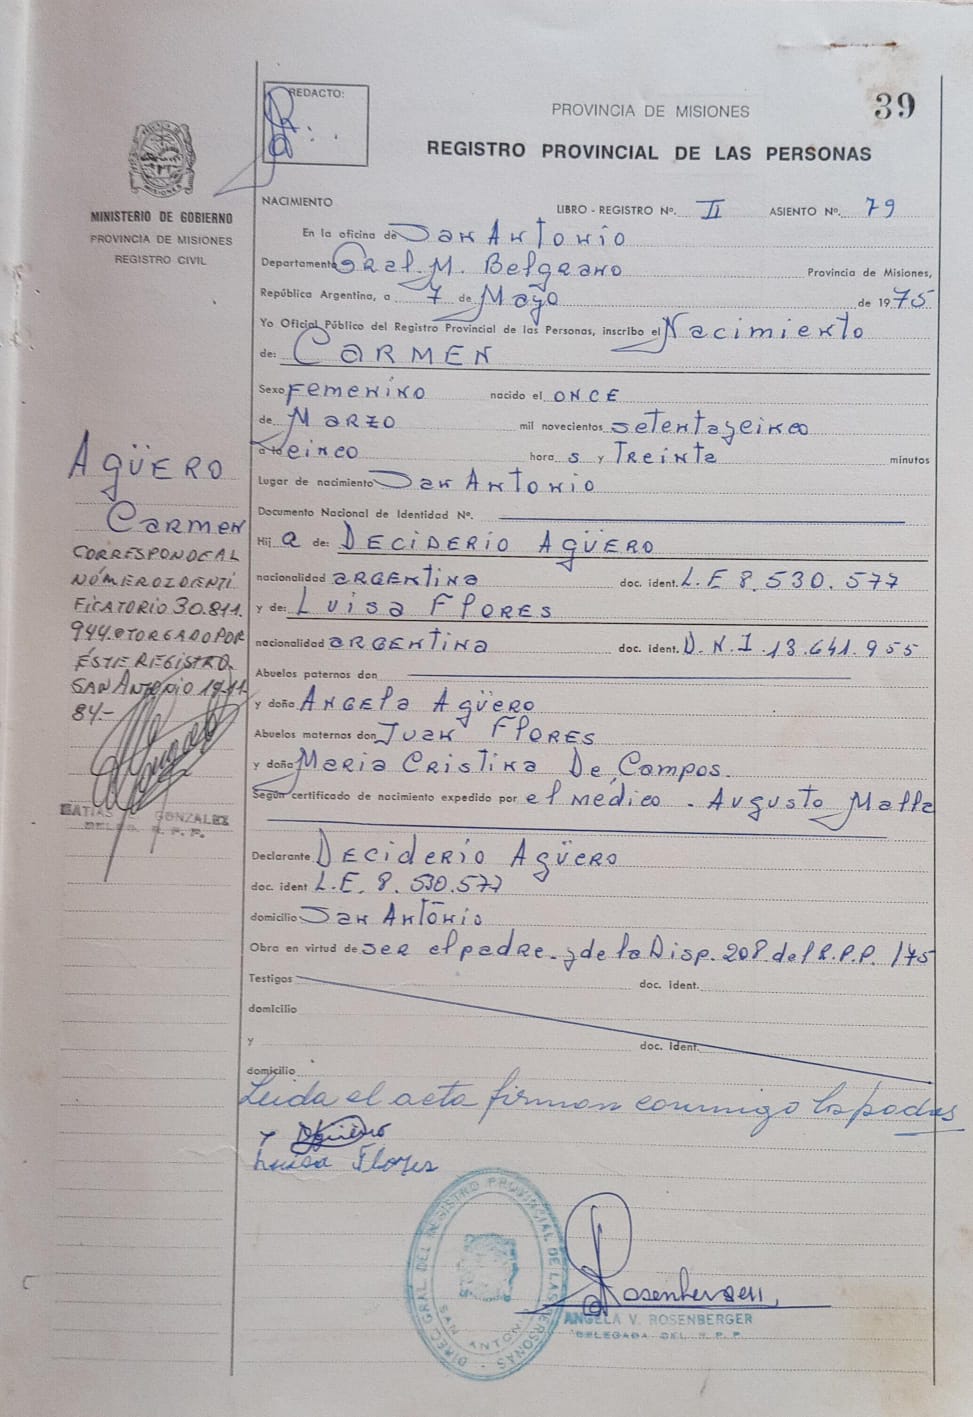 REDACTO:
PROVINCIA DE MISIONES
39
REGISTRO PROVINCIAL DE LAS PERSONAS
MINISTERIO DE GOBIERNO
PROVINCIA DE MISIONES
REGISTRO CIVIL
NACIMIENTO
LIBRO - REGISTRO Nº. II ASIENTO Nº. 79
En la oficina de San Antonio
Departamento Gral. M. Belgrano Provincia de Misiones,
República Argentina, a 7 de Mayo de 1975
Yo Oficial Público del Registro Provincial de las Personas, inscribo el Nacimiento
de: CARMEN
Sexo Femenino nacido el ONCE
de Marzo mil novecientos setentaycinco
a la cinco hora s y Treinta minutos
Lugar de nacimiento San Antonio
Documento Nacional de Identidad Nº.
Hij a de: DECIDERIO AGÜERO
nacionalidad ARGENTINA doc. ident. L.E 8.530.577
y de: Luisa Flores
nacionalidad ARGENTINA doc. ident. D.N.I. 13.641.955
Abuelos paternos don
y doña Angela Agüero
Abuelos maternos don Juan Flores
y doña Maria Cristina De Campos.
Según certificado de nacimiento expedido por el médico - Augusto Malla
Declarante DECIDERIO AGÜERO
doc. ident L.E. 8.530.577
domicilio San Antonio
Obra en virtud de ser el padre y de la Disp. 208 del R.P.P. /75
Testigos doc. ident.
domicilio
y doc. ident.
domicilio
Leida el acta firman conmigo los padres
y Agüero
Luisa Flores
AGÜERO
Carmen
CORRESPONDE AL
NÚMERO IDENTI
FICATORIO 30.811.
944 OTORGADO POR
ÉSTE REGISTRO
SAN ANTONIO 19-11-
84.-
GONZALEZ
DELEG. R. P. P.
DIREC. GRAL. DEL REGISTRO PROVINCIAL DE LAS PERSONAS
SAN ANTONIO
Rosenberger
ANGELA V. ROSENBERGER
DELEGADA DEL R. P. P.